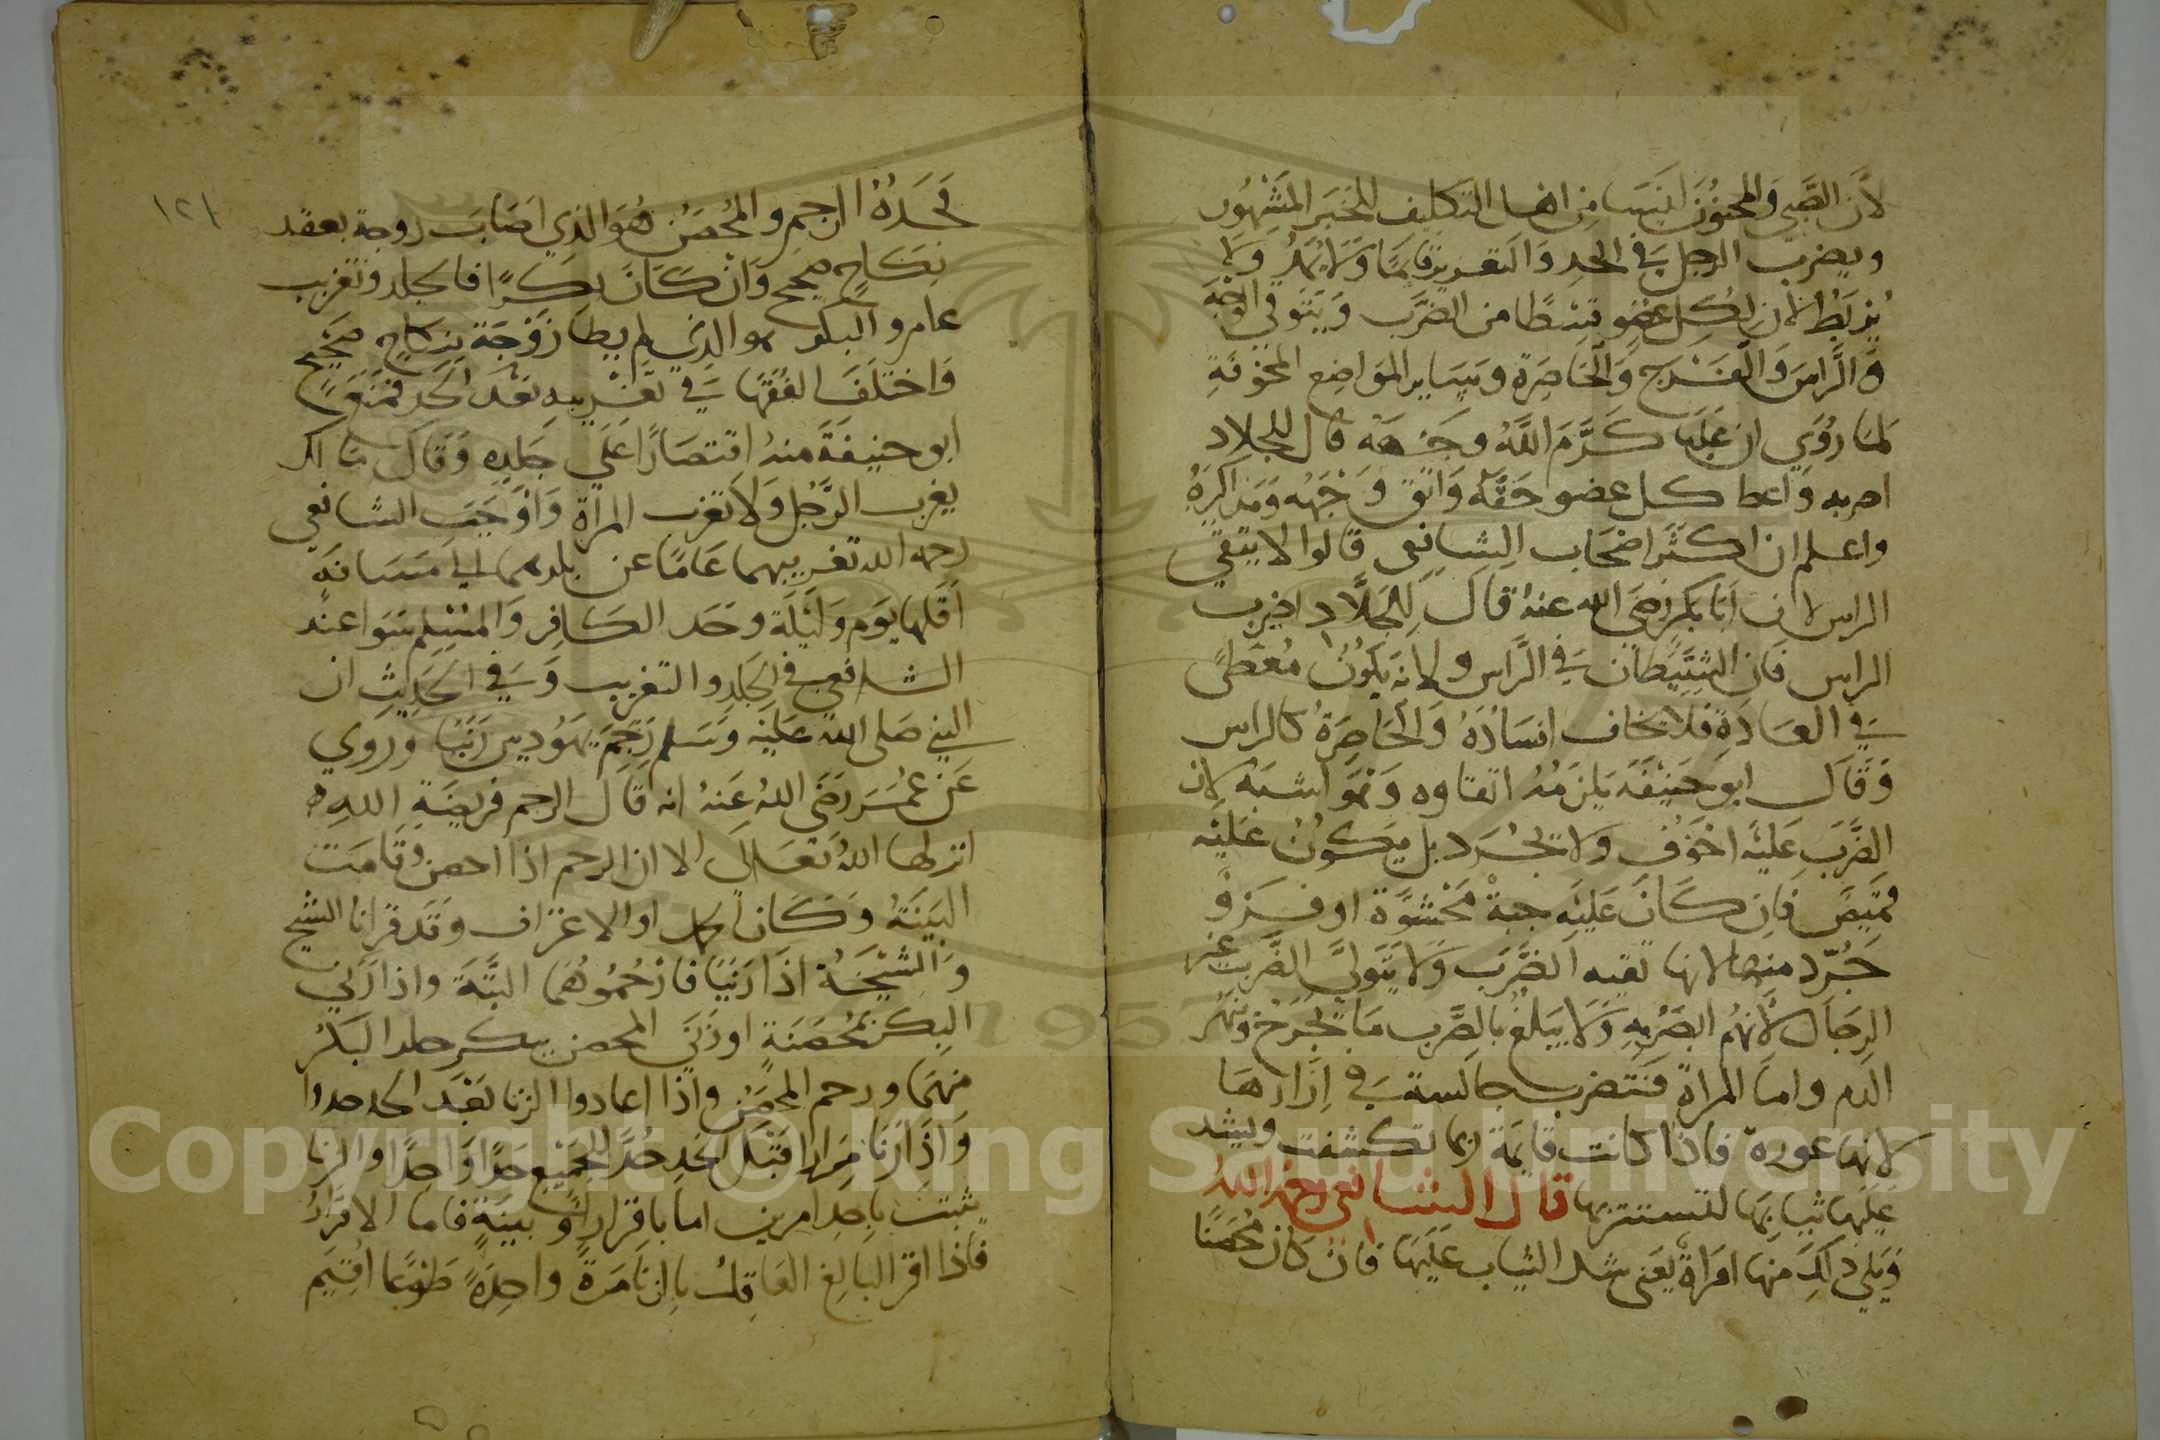 لأن الصبي والمجنون ليسا من اهل التكليف للخبر المشهور
ويضرب الرجل في الحد والتعزير قايما ولا يمد ولا
يربط لان لكل عضو قسطا من الضرب ويتوقي الوجه
والراس والفرج والخاصرة وساير المواضع المخوفة
لما روي ان عليا كرم الله وجهه قال للجلاد
اضربه واعط كل عضو حقه واتق وجهه ومذاكره
واعلم ان اكثر اصحاب الشافعي قالوا لا يتقي
الراس لان ابا بكر رضي الله عنه قال للجلاد اضرب
الراس فان الشيطان في الراس ولانه يكون مغطى
في العادة فلا يخاف افساده والخاصرة كالراس
وقال ابو حنيفة يلزمه اتقاوه وهو اشبه لان
الضرب عليه اخوف ولا يجرد بل يكون عليه
قميص فان كان عليه جبة محشوة او فرو
جرد منها لانها تقيه الضرب ولا يتولى الضرب غير
الرجال لأنهم ابصر به ولا يبلغ بالضرب ما يجرح وينهر
الدم واما المراة فتضرب جالسة في إزارها
لانها عورة فاذا كانت قايمة ربما تكشفت ويشد
عليها ثيابها لتستتر بها قال الشافعي رحمه الله
ويلي ذلك منها امراة يعني شد الثياب عليها فان كان محصنا
١٢١
فحده الرجم والمحصن هو الذي اصاب زوجة بعقد
نكاح صحيح وان كان بكرا فالجلد وتغريب
عام والبكر هو الذي لم يطا زوجة بنكاح صحيح
واختلف الفقها في تغريبه بعد الحد فمنع
ابو حنيفة منه اقتصارا على جلده وقال مالك
يغرب الرجل ولا تغرب المراة واوجب الشافعي
رحمه الله تغريبهما عاما عن بلدهما الى مسافة
اقلها يوم وليلة وحد الكافر والمسلم سوا عند
الشافعي في الجلد والتغريب وفي الحديث ان
النبي صلى الله عليه وسلم رجم يهوديين زنيا وروي
عن عمر رضي الله عنه انه قال الرجم فريضة الله
انزلها الله تعالى الا ان الرجم اذا احصن وقامت
البينة وكان الحمل او الاعتراف وقد قرانا الشيخ
والشيخة اذا زنيا فارجموهما البتة واذا زنى
البكر بمحصنة او زنى المحصن ببكر جلد البكر
منهما ورجم المحصن واذا اعادوا الزنا بعد الحد حدوا
واذا زنا مرارا قبل الحد حد للجميع حدا واحدا والزنا
يثبت باحد امرين اما باقرار او بينة فاما الاقرار
فاذا اقر البالغ العاقل بالزنا مرة واحدة طوعا اقيم
Copyright © King Saud University
1957